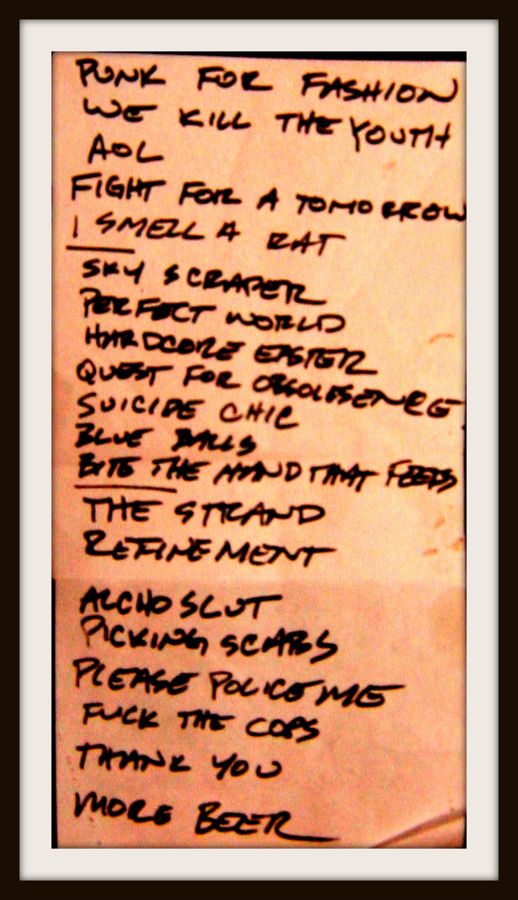 PUNK FOR FASHION
WE KILL THE YOUTH
AOL
FIGHT FOR A TOMORROW
I SMELL A RAT
SKY SCRAPER
PERFECT WORLD
HARDCORE EASTER
QUEST FOR OBSOLESENCE
SUICIDE CHIC
BLUE BALLS
BITE THE HAND THAT FEEDS
THE STRAND
REFINEMENT
ALCHOSLUT
PICKING SCABS
PLEASE POLICE ME
FUCK THE COPS
THANK YOU
MORE BEER